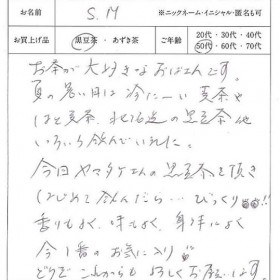 お名前 S.M ※ニックネーム・イニシャル・匿名も可
お買上げ品 黒豆茶・あずき茶 ご年齢 20代・30代・40代
50代・60代・70代
お茶が大好きなおばさんです。
夏の暑い日は冷たーい麦茶や
はと麦茶、北海道の黒豆茶他
いろいろ飲んでいました。
今回ヤマタケさんの黒豆茶を頂き
はじめて飲んだら…びっくり!!
香りもよく、味もよく、身体によく
今1番のお気に入り!!
どうぞこれからもよろしくお願いします。